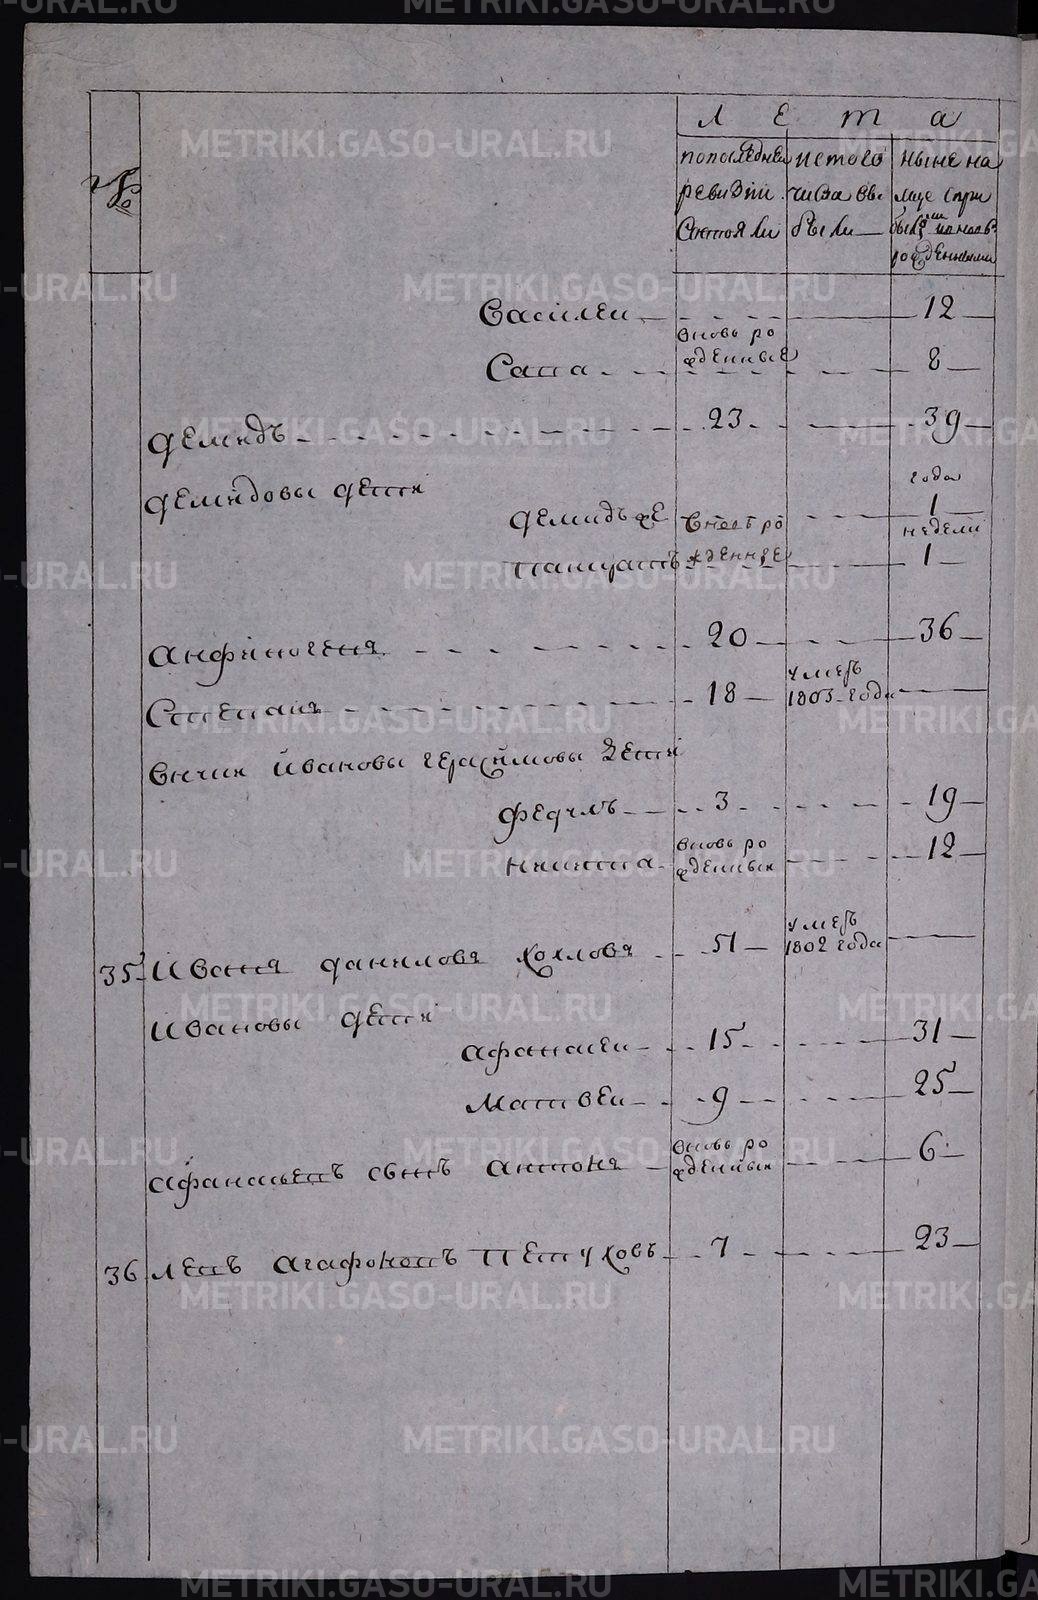 №
Лета
по последней ревизии состояли
из того числа выбыли
ныне на лице
Василеи 12
Сапа вновь рожденные 8
Демидъ 23 39
Демидовы дети
Демидъ же вновь рожденные года 1
недели 1
Анфиногенъ 20 36
Степанъ 18 умеръ 1803 года
внуки Ивановы Герасимовы дети
Федулъ 3 19
Никита вновь рожденныи 12
35 Иванъ Даниловъ Хохловъ 51 умеръ 1802 года
Ивановы дети
Афанасеи 15 31
Матвеи 9 25
Афанасьевъ сынъ Антонъ вновь рожденныи 6
36 Левъ Агафоновъ Петуховъ 7 23
METRIKI.GASO-URAL.RU